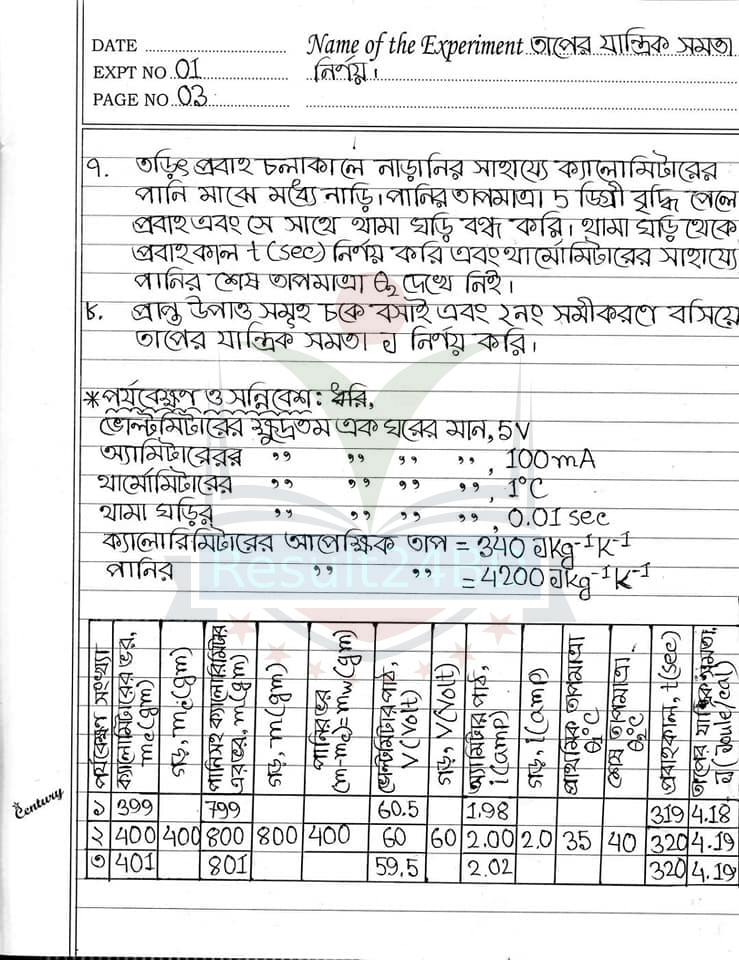 DATE
Name of the Experiment তাপের যান্ত্রিক সমতা
EXPT NO 01
নির্ণয়।
PAGE NO 03
৭. তড়িৎ প্রবাহ চলাকালে নাড়ানির সাহায্যে ক্যালোমিটারের
পানি মাঝে মধ্যে নাড়ি। পানির তাপমাত্রা 5 ডিগ্রী বৃদ্ধি পেলে
প্রবাহ এবং সে সাথে থামা ঘড়ি বন্ধ করি। থামা ঘড়ি থেকে
প্রবাহকাল t (sec) নির্ণয় করি এবং থার্মোমিটারের সাহায্যে
পানির শেষ তাপমাত্রা θ₂ দেখে নিই।
৮. প্রাপ্ত উপাত্ত সমূহ ছকে বসাই এবং ২নং সমীকরণে বসিয়ে
তাপের যান্ত্রিক সমতা J নির্ণয় করি।
*পর্যবেক্ষণ ও সন্নিবেশ: ধরি,
ভোল্টমিটারের ক্ষুদ্রতম এক ঘরের মান, 5V
অ্যামিটারেরর ,, ,, ,, ,, , 100mA
থার্মোমিটারের ,, ,, ,, ,, , 1°C
থামা ঘড়ির ,, ,, ,, ,, , 0.01 sec
ক্যালোরিমিটারের আপেক্ষিক তাপ = 340 Jkg⁻¹K⁻¹
পানির ,, ,, = 4200 Jkg⁻¹K⁻¹
Result24BD
পর্যবেক্ষণ সংখ্যা
ক্যালোমিটারের ভর, mc(gm)
গড়, mc(gm)
পানিসহ ক্যালোরিমিটার এর ভর, m(gm)
গড়, m(gm)
পানির ভর (m-mc)=mw(gm)
ভোল্টমিটার পাঠ, V(Volt)
গড়, V(Volt)
অ্যামিটার পাঠ, i(amp)
গড়, i(amp)
প্রাথমিক তাপমাত্রা θ₁°C
শেষ তাপমাত্রা θ₂°C
প্রবাহকাল, t(sec)
তাপের যান্ত্রিক সমতা, J(Joule/cal)
১ 399 799 60.5 1.98 319 4.18
২ 400 400 800 800 400 60 60 2.00 2.0 35 40 320 4.19
৩ 401 801 59.5 2.02 320 4.19
Century